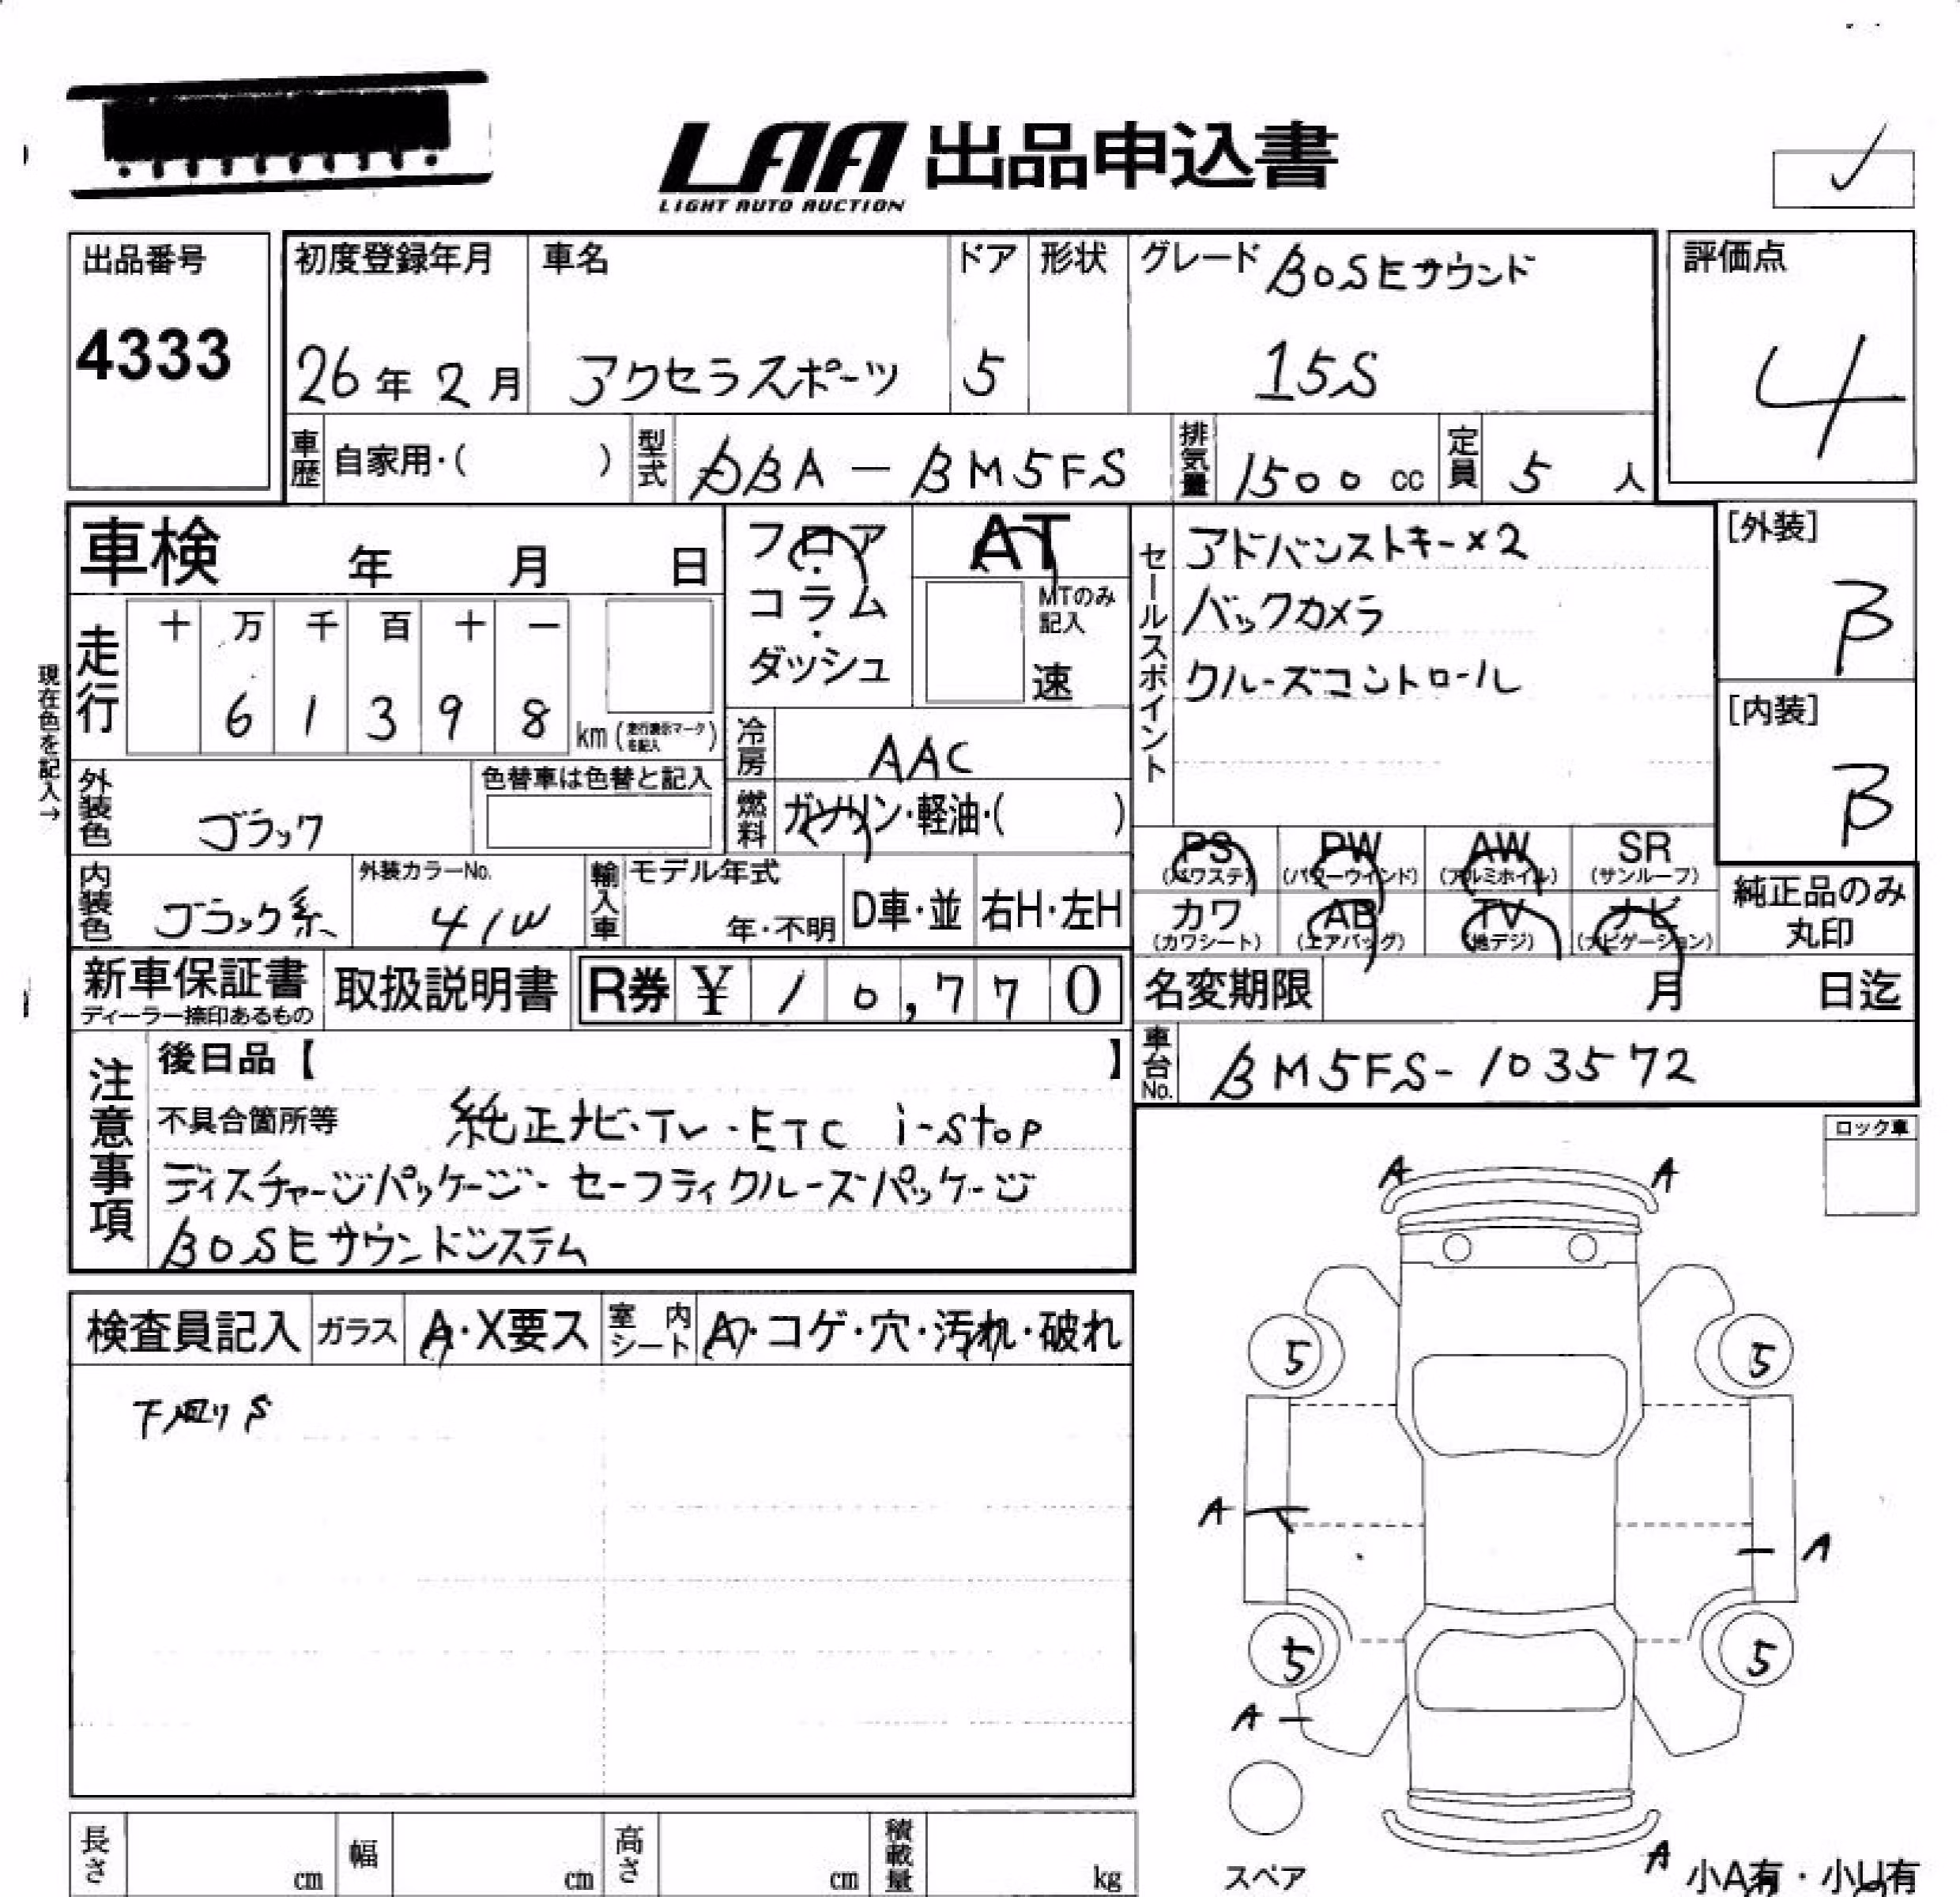 LAA 出品申込書
LIGHT AUTO AUCTION
出品番号
4333
初度登録年月
26年2月
車名
アクセラスポーツ
ドア
5
形状
グレード BOSEサウンド
15S
評価点
4
車歴 自家用・( )
型式 DBA-BM5FS
排気量 1500cc
定員 5人
車検 年 月 日
フロア・コラム・ダッシュ
AT
MTのみ記入
速
セールスポイント
アドバンストキー×2
バックカメラ
クルーズコントロール
[外装]
B
[内装]
B
現在色を記入→
走行
十 万 千 百 十 一
6 1 3 9 8 km (走行表示マークを記入)
冷房 AAC
燃料 ガソリン・軽油・( )
外装色 ブラック
色替車は色替と記入
内装色 ブラック系
外装カラーNo.
41W
輸入車
モデル年式
年・不明
D車・並
右H・左H
PS (パワステ)
PW (パワーウインド)
AW (アルミホイル)
SR (サンルーフ)
カワ (カワシート)
AB (エアバッグ)
TV (地デジ)
ナビ (ナビゲーション)
純正品のみ丸印
新車保証書
ディーラー捺印あるもの
取扱説明書
R券 ¥ 10,770
名変期限 月 日迄
車台No. BM5FS-103572
注意事項
後日品【 】
不具合箇所等 純正ナビ・TV・ETC i-stop
ディスチャージパッケージ・セーフティクルーズパッケージ
BOSEサウンドシステム
ロック車
検査員記入
ガラス A・X要ス
室内シート A・コゲ・穴・汚れ・破れ
A A
5 5
A A
5 5
A
スペア
A
小A有・小U有
長さ cm
幅 cm
高さ cm
積載量 kg